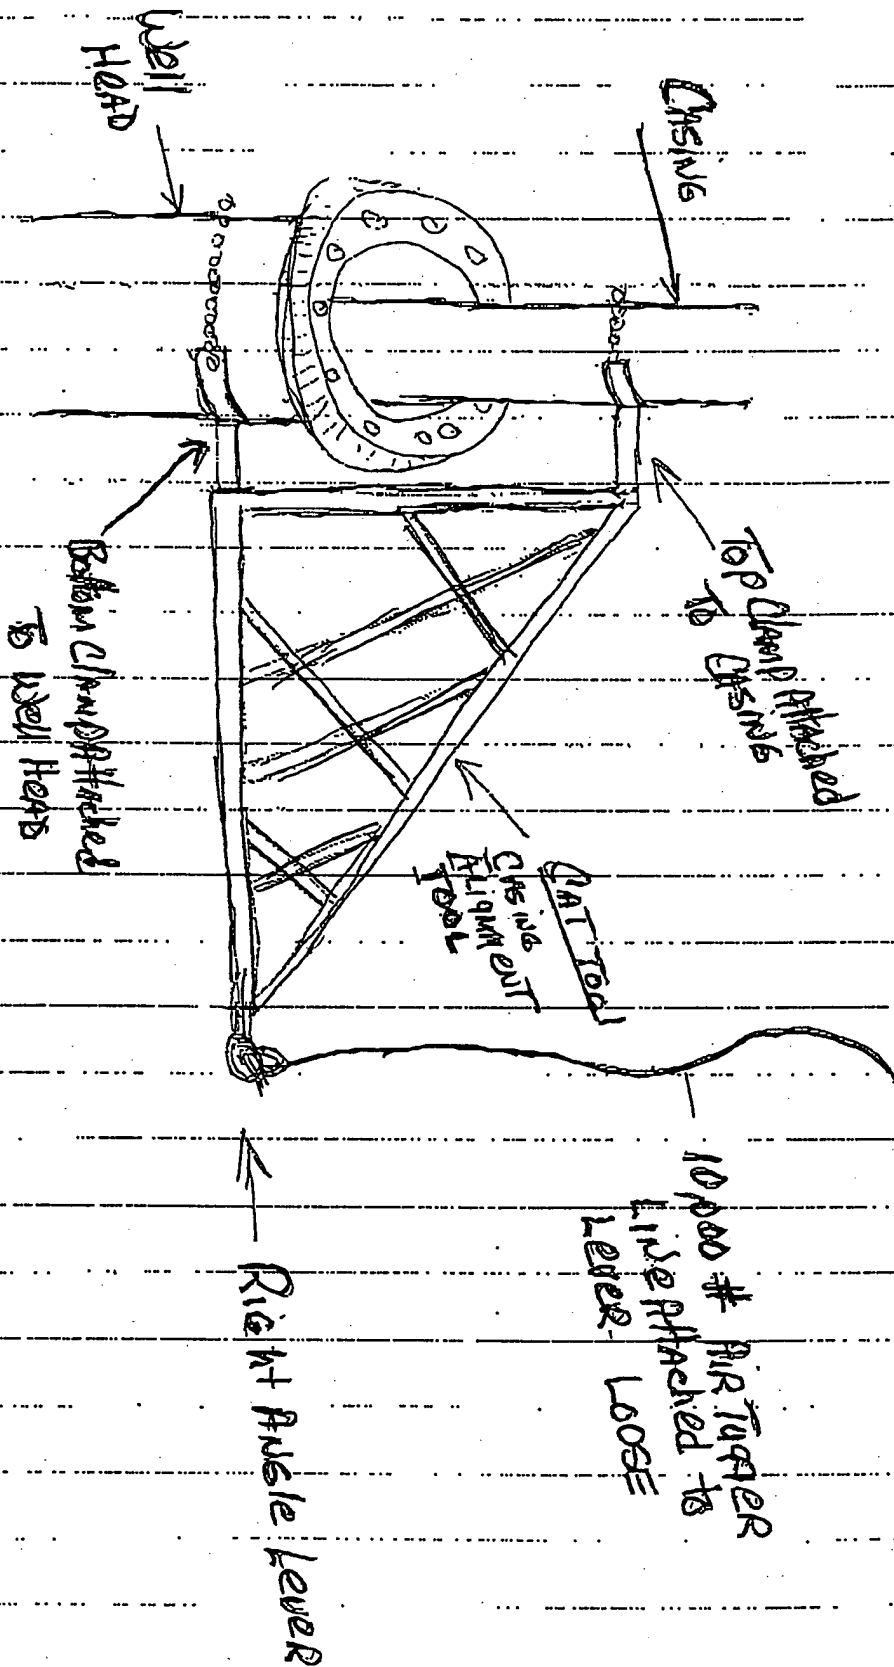 Well
HEAD
CASING
Top Clamp Attached
To CASING
Bottom Clamp Attached
To Well HEAD
CAT Tool
CASING
ALIGNMENT
TOOL
10,000 # AIR TUGGER
LINE Attached to
LEVER LOOSE
Right Angle Lever